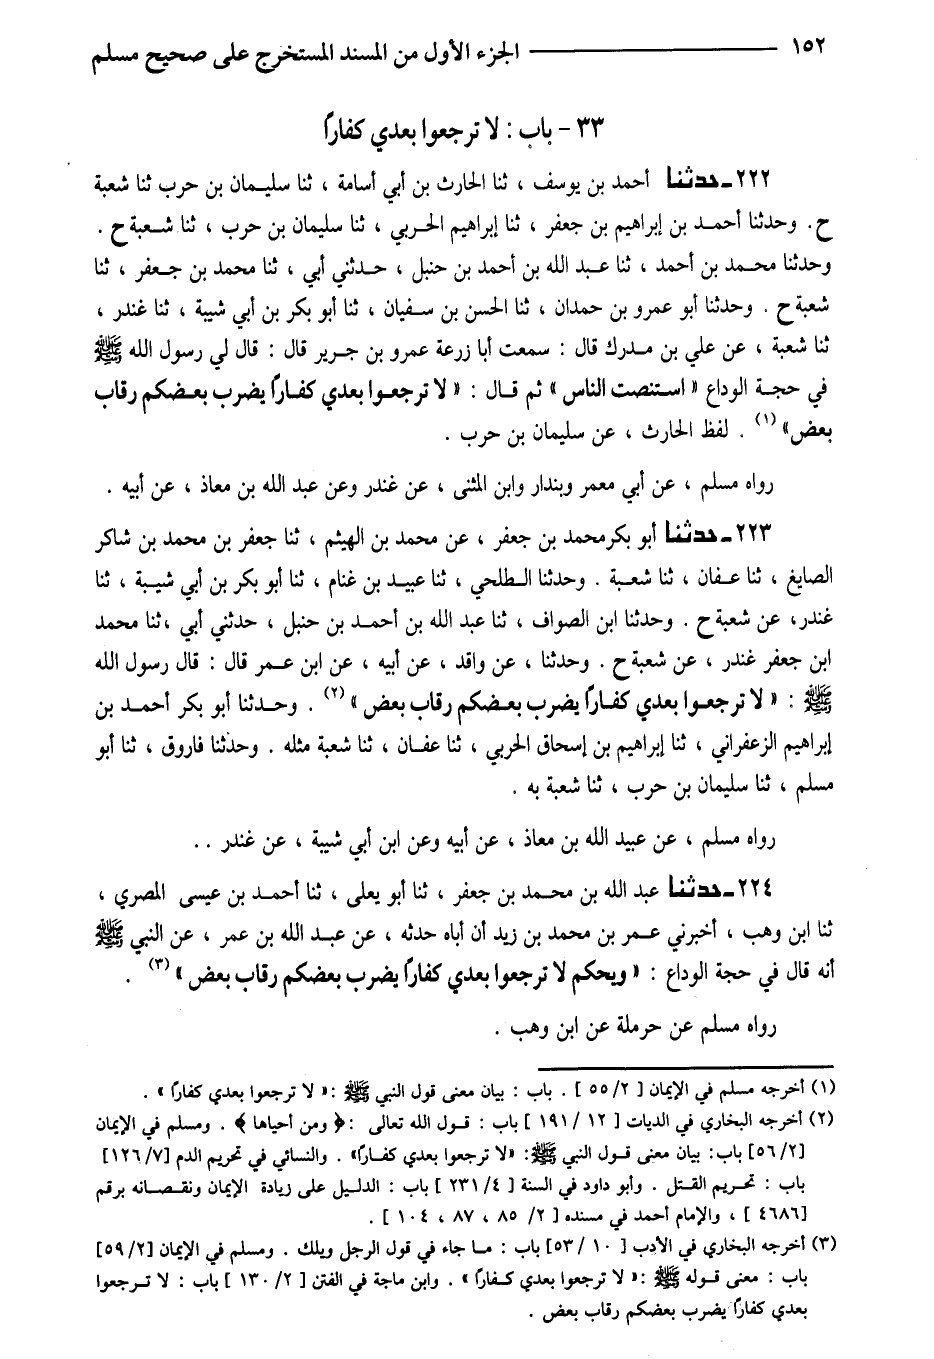 ١٥٢ ـــــــــــــ الجزء الأول من المسند المستخرج على صحيح مسلم
٣٣ - باب : لا ترجعوا بعدي كفاراً
٢٢٢ـ حدثنا أحمد بن يوسف ، ثنا الحارث بن أبي أسامة ، ثنا سليمان بن حرب ثنا شعبة
ح. وحدثنا أحمد بن إبراهيم بن جعفر ، ثنا إبراهيم الحربي ، ثنا سليمان بن حرب ، ثنا شعبة ح .
وحدثنا محمد بن أحمد ، ثنا عبد الله بن أحمد بن حنبل ، حدثني أبي ، ثنا محمد بن جعفر ، ثنا
شعبة ح . وحدثنا أبو عمرو بن حمدان ، ثنا الحسن بن سفيان ، ثنا أبو بكر بن أبي شيبة ، ثنا غندر ،
ثنا شعبة ، عن علي بن مدرك قال : سمعت أبا زرعة عمرو بن جرير قال : قال لي رسول الله ﷺ
في حجة الوداع « استنصت الناس » ثم قال : « لا ترجعوا بعدي كفاراً يضرب بعضكم رقاب
بعض» (١) . لفظ الحارث ، عن سليمان بن حرب .
رواه مسلم ، عن أبي معمر وبندار وابن المثنى ، عن غندر وعن عبد الله بن معاذ ، عن أبيه .
٢٢٣ـ حدثنا أبو بكر محمد بن جعفر ، عن محمد بن الهيثم ، ثنا جعفر بن محمد بن شاكر
الصايغ ، ثنا عفان ، ثنا شعبة . وحدثنا الطلحي ، ثنا عبيد بن غنام ، ثنا أبو بكر بن أبي شيبة ، ثنا
غندر، عن شعبة ح . وحدثنا ابن الصواف ، ثنا عبد الله بن أحمد بن حنبل ، حدثني أبي ،ثنا محمد
ابن جعفر غندر ، عن شعبة ح . وحدثنا ، عن واقد ، عن أبيه ، عن ابن عمر قال : قال رسول الله
ﷺ : « لا ترجعوا بعدي كفاراً يضرب بعضكم رقاب بعض » (٢) . وحدثنا أبو بكر أحمد بن
إبراهيم الزعفراني ، ثنا إبراهيم بن إسحاق الحربي ، ثنا عفان ، ثنا شعبة مثله . وحدثنا فاروق ، ثنا أبو
مسلم ، ثنا سليمان بن حرب ، ثنا شعبة به .
رواه مسلم ، عن عبيد الله بن معاذ ، عن أبيه وعن ابن أبي شيبة ، عن غندر . .
٢٢٤ـ حدثنا عبد الله بن محمد بن جعفر ، ثنا أبو يعلى ، ثنا أحمد بن عيسى المصري ،
ثنا ابن وهب ، أخبرني عمر بن محمد بن زيد أن أباه حدثه ، عن عبد الله بن عمر ، عن النبي ﷺ
أنه قال في حجة الوداع : « ويحكم لا ترجعوا بعدي كفاراً يضرب بعضكم رقاب بعض » (٣) .
رواه مسلم عن حرملة عن ابن وهب .
(١) أخرجه مسلم في الإيمان [ ٢/ ٥٥ ] . باب : بيان معنى قول النبي ﷺ :« لا ترجعوا بعدي كفاراً » .
(٢) أخرجه البخاري في الديات [ ١٢ / ١٩١ ] باب : قول الله تعالى :﴿ ومن أحياها ﴾ . ومسلم في الإيمان
[٢/ ٥٦] باب: بيان معنى قول النبي ﷺ: «لا ترجعوا بعدي كفاراً» . والنسائي في تحريم الدم [٧/ ١٢٦]
باب : تحريم القتل . وأبو داود في السنة [ ٤/ ٢٣١ ] باب : الدليل على زيادة الإيمان ونقصانه برقم
[٤٦٨٦ ] ، والإمام أحمد في مسنده [ ٢/ ٨٥ ، ٨٧ ، ١٠٤ ] .
(٣) أخرجه البخاري في الأدب [ ١٠ / ٥٣] باب : ما جاء في قول الرجل ويلك . ومسلم في الإيمان [٢/ ٥٩]
باب : معنى قوله ﷺ :« لا ترجعوا بعدي كفاراً » . وابن ماجة في الفتن [ ٢/ ١٣٠ ] باب : لا ترجعوا
بعدي كفاراً يضرب بعضكم رقاب بعض .